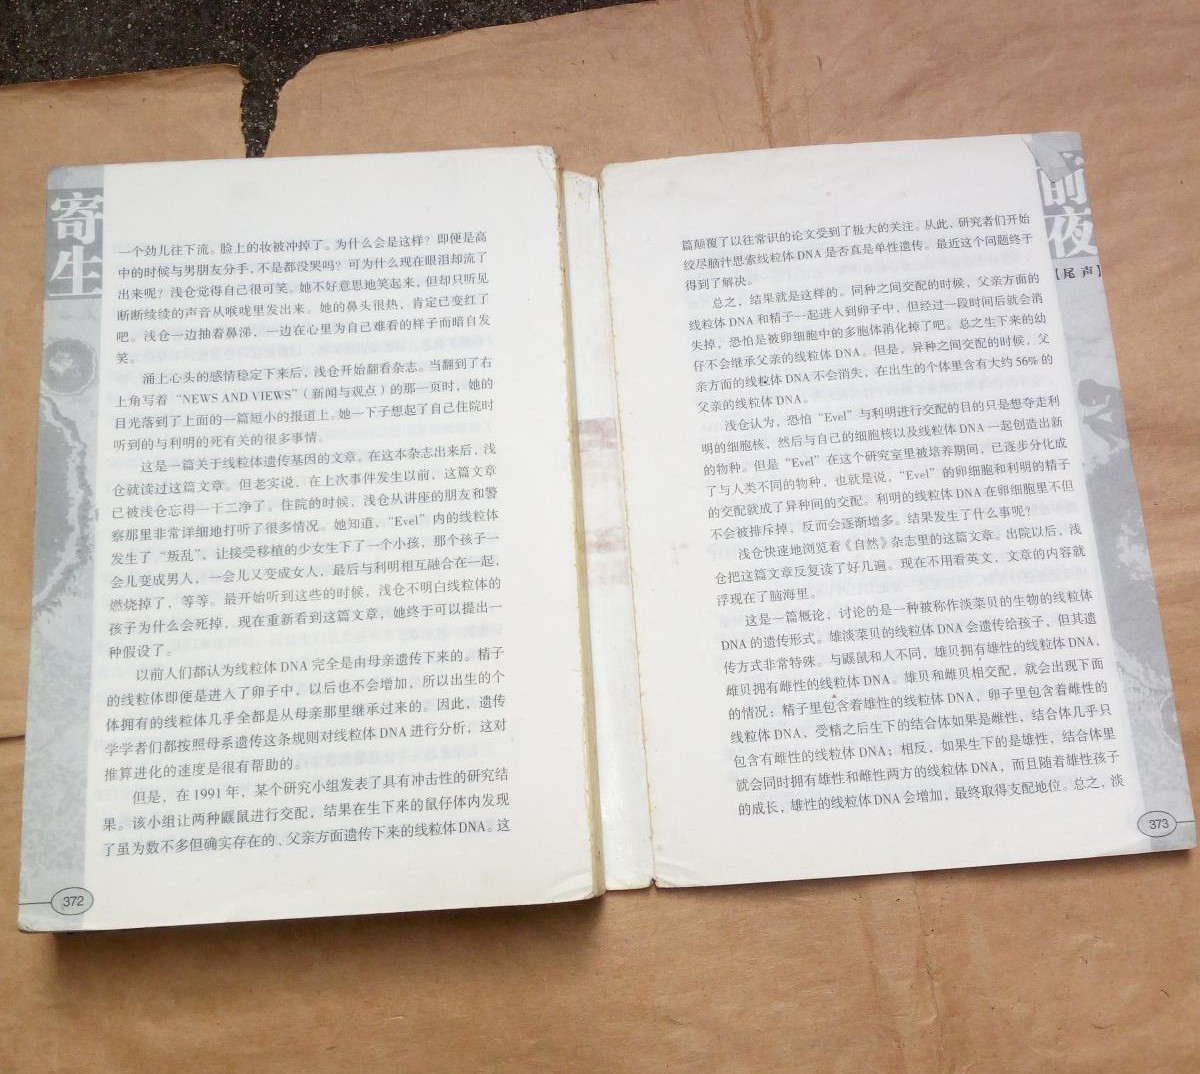 寄生
一个劲儿往下流。脸上的妆被冲掉了。为什么会是这样？即便是高
中的时候与男朋友分手，不是都没哭吗？可为什么现在眼泪却流了
出来呢？浅仓觉得自己很可笑。她不好意思地笑起来，但却只听见
断断续续的声音从喉咙里发出来。她的鼻头很热，肯定已变红了
吧。浅仓一边抽着鼻涕，一边在心里为自己难看的样子而暗自发
笑。
涌上心头的感情稳定下来后，浅仓开始翻看杂志。当翻到了右
上角写着“NEWS AND VIEWS”（新闻与观点）的那一页时，她的
目光落到了上面的一篇短小的报道上。她一下子想起了自己住院时
听到的与利明的死有关的很多事情。
这是一篇关于线粒体遗传基因的文章。在这本杂志出来后，浅
仓就读过这篇文章。但老实说，在上次事件发生以前，这篇文章
已被浅仓忘得一干二净了。住院的时候，浅仓从讲座的朋友和警
察那里非常详细地打听了很多情况。她知道，“Evel”内的线粒体
发生了“叛乱”，让接受移植的少女生下了一个小孩，那个孩子一
会儿变成男人，一会儿又变成女人，最后与利明相互融合在一起，
燃烧掉了，等等。最开始听到这些的时候，浅仓不明白线粒体的
孩子为什么会死掉，现在重新看到这篇文章，她终于可以提出一
种假设了。
以前人们都认为线粒体DNA完全是由母亲遗传下来的。精子
的线粒体即便是进入了卵子中，以后也不会增加，所以出生的个
体拥有的线粒体几乎全都是从母亲那里继承过来的。因此，遗传
学学者们都按照母系遗传这条规则对线粒体DNA进行分析，这对
推算进化的速度是很有帮助的。
但是，在1991年，某个研究小组发表了具有冲击性的研究结
果。该小组让两种鼹鼠进行交配，结果在生下来的鼠仔体内发现
了虽为数不多但确实存在的、父亲方面遗传下来的线粒体DNA。这
372
前夜
【尾声】
篇颠覆了以往常识的论文受到了极大的关注。从此，研究者们开始
绞尽脑汁思索线粒体DNA是否真是单性遗传。最近这个问题终于
得到了解决。
总之，结果就是这样的。同种之间交配的时候，父亲方面的
线粒体DNA和精子一起进入到卵子中，但经过一段时间后就会消
失掉，恐怕是被卵细胞中的多胞体消化掉了吧。总之生下来的幼
仔不会继承父亲的线粒体DNA。但是，异种之间交配的时候，父
亲方面的线粒体DNA不会消失，在出生的个体里含有大约56%的
父亲的线粒体DNA。
浅仓认为，恐怕“Evel”与利明进行交配的目的只是想夺走利
明的细胞核，然后与自己的细胞核以及线粒体DNA一起创造出新
的物种。但是“Evel”在这个研究室里被培养期间，已逐步分化成
了与人类不同的物种，也就是说，“Evel”的卵细胞和利明的精子
的交配就成了异种间的交配。利明的线粒体DNA在卵细胞里不但
不会被排斥掉，反而会逐渐增多。结果发生了什么事呢？
浅仓快速地浏览着《自然》杂志里的这篇文章。出院以后，浅
仓把这篇文章反复读了好几遍。现在不用看英文，文章的内容就
浮现在了脑海里。
这是一篇概论，讨论的是一种被称作淡菜贝的生物的线粒体
DNA的遗传形式。雄淡菜贝的线粒体DNA会遗传给孩子，但其遗
传方式非常特殊。与鼹鼠和人不同，雄贝拥有雄性的线粒体DNA，
雌贝拥有雌性的线粒体DNA。雄贝和雌贝相交配，就会出现下面
的情况：精子里包含着雄性的线粒体DNA，卵子里包含着雌性的
线粒体DNA，受精之后生下的结合体如果是雌性，结合体几乎只
包含有雌性的线粒体DNA；相反，如果生下的是雄性，结合体里
就会同时拥有雄性和雌性两方的线粒体DNA，而且随着雄性孩子
的成长，雄性的线粒体DNA会增加，最终取得支配地位。总之，淡
373